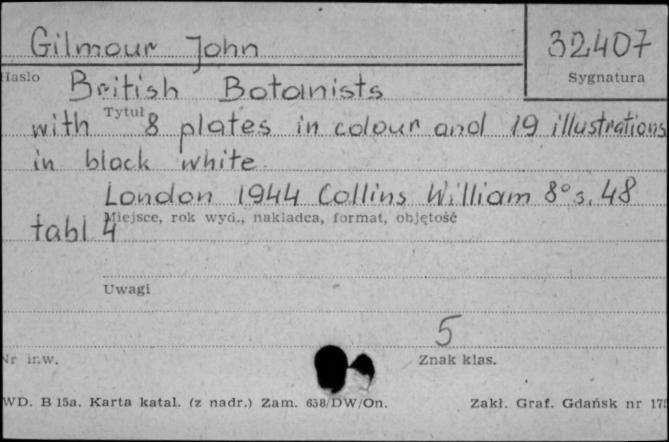 Gilmour John
32407
Hasło
Sygnatura
British Botanists
Tytuł
with 8 plates in colour and 19 illustrations
in black white
London 1944 Collins William 8° s. 48
Miejsce, rok wyd., nakładca, format, objętość
tabl 4
Uwagi
5
Nr inw.
Znak klas.
WD. B 15a. Karta katal. (z nadr.) Zam. 658/DW/On.
Zakł. Graf. Gdańsk nr 175